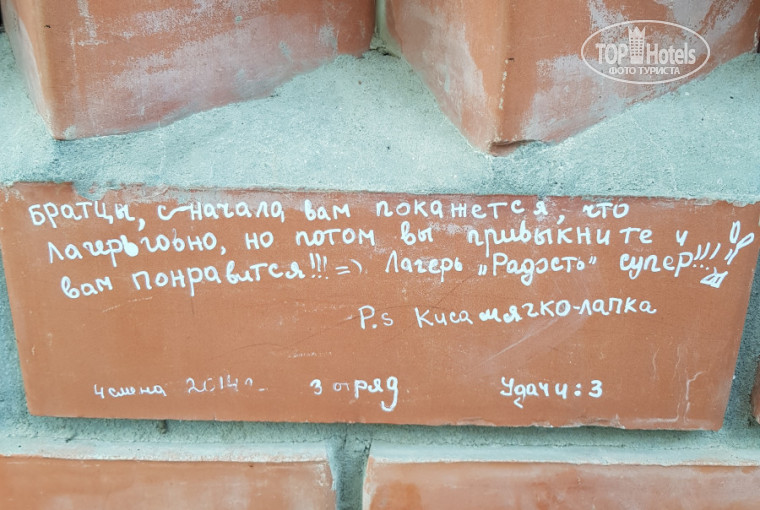 TOP Hotels
ФОТО ТУРИСТА
Братцы, сначала вам покажется, что
лагерь говно, но потом вы привыкните и
вам понравится!!! =) Лагерь „Радость“ супер!!!
P.s Киса мягко-лапка
4 смена 2014г. 3 отряд Удачи :3